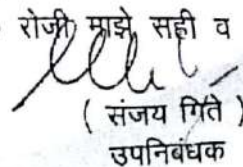 रोजी माझे सही व
( संजय गिते )
उपनिबंधक